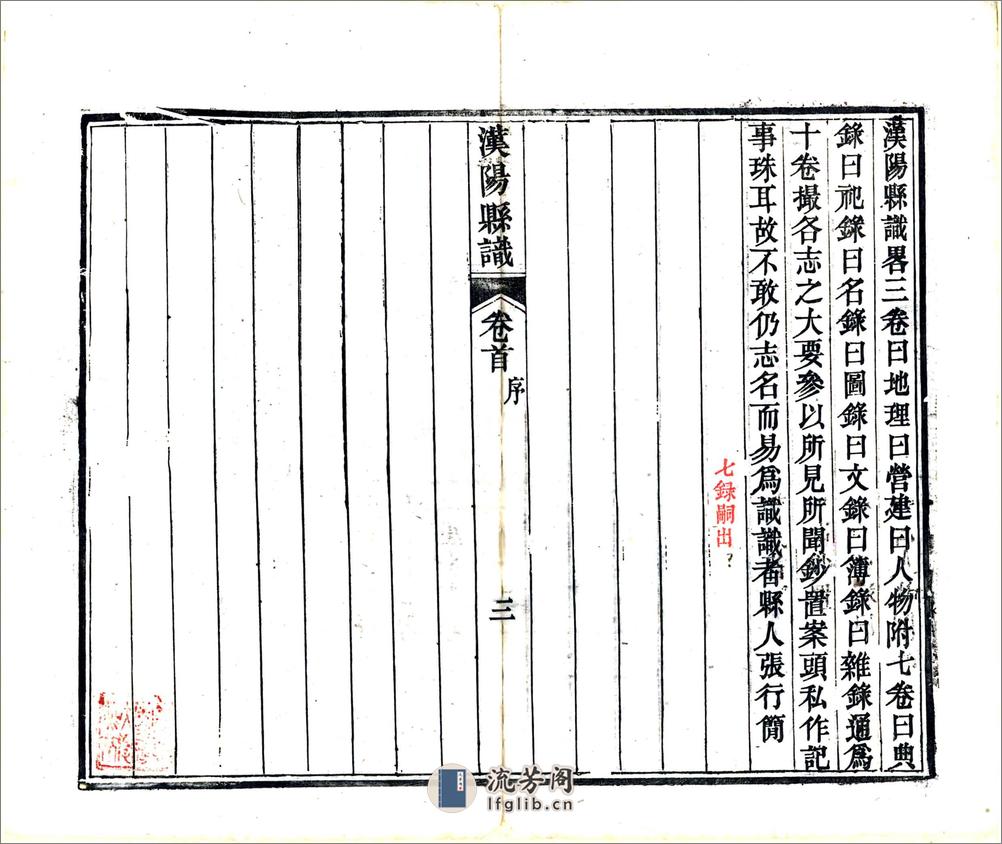 漢陽縣識畧三卷曰地理曰營建曰人物附七卷曰典
錄曰祀錄曰名錄曰圖錄曰文錄曰簿錄曰雜錄通爲
十卷撮各志之大要參以所見所聞鈔置案頭私作記
事珠耳故不敢仍志名而易爲識識者縣人張行簡
七録嗣出?
漢陽縣識
卷首
序
三
流芳阁
lfglib.cn